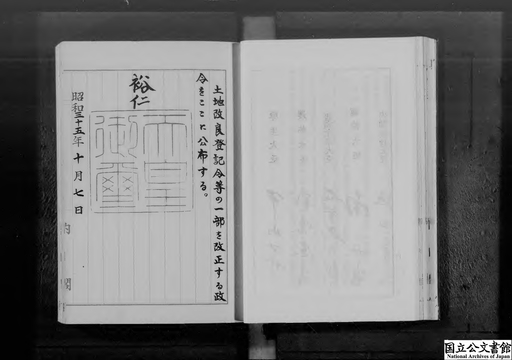 土地改良登記令等の一部を改正する政
令をここに公布する。
裕仁
天皇
御璽
昭和三十五年十月七日
内閣
国立公文書館
National Archives of Japan